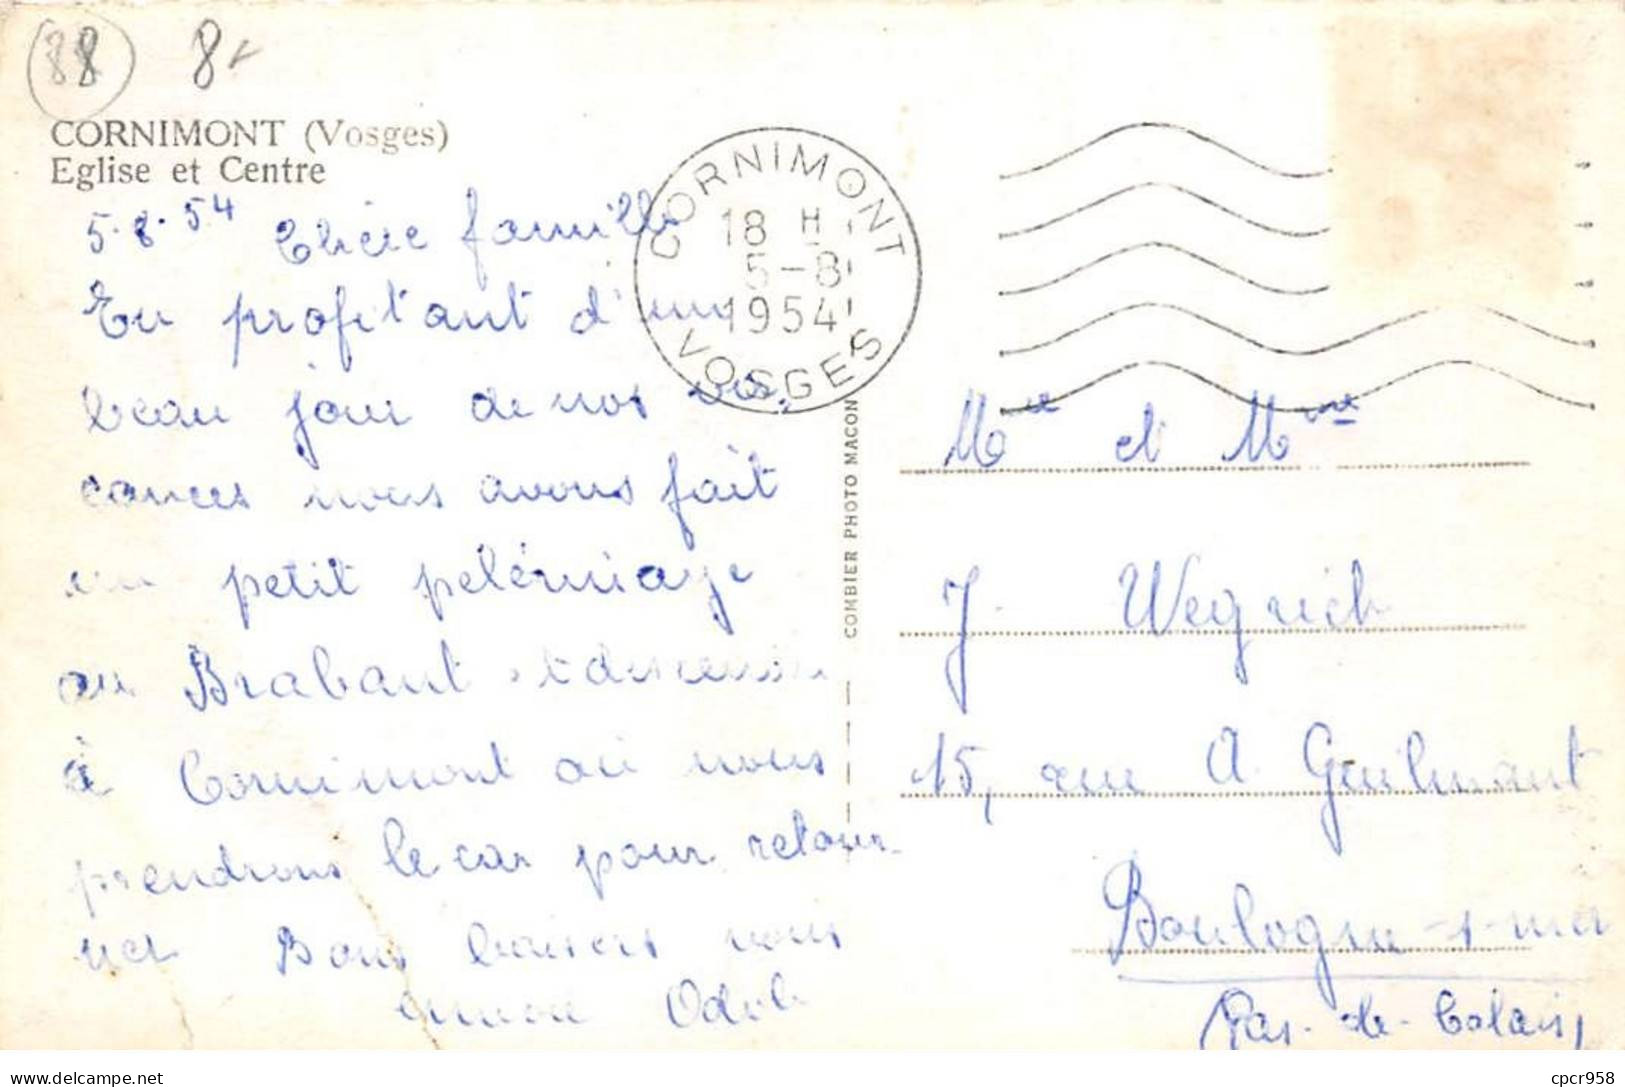 88 8
CORNIMONT (Vosges)
Eglise et Centre
CORNIMONT
18 H
5-8
1954
VOSGES
5.8.54 Chère famille
En profitant d'un
beau jour de nos va-
cances nous avons fait
un petit pelérniage
au Brabant et
à Cornimont où nous
prendrons le car pour retour-
ner Bons baisers
Odile
COMBIER PHOTO MACON
Mr et Mme
J. Wegrich
15, rue A Guilmant
Boulogne-s-mer
Pas-de-Calais
delcampe.net
cpcr958